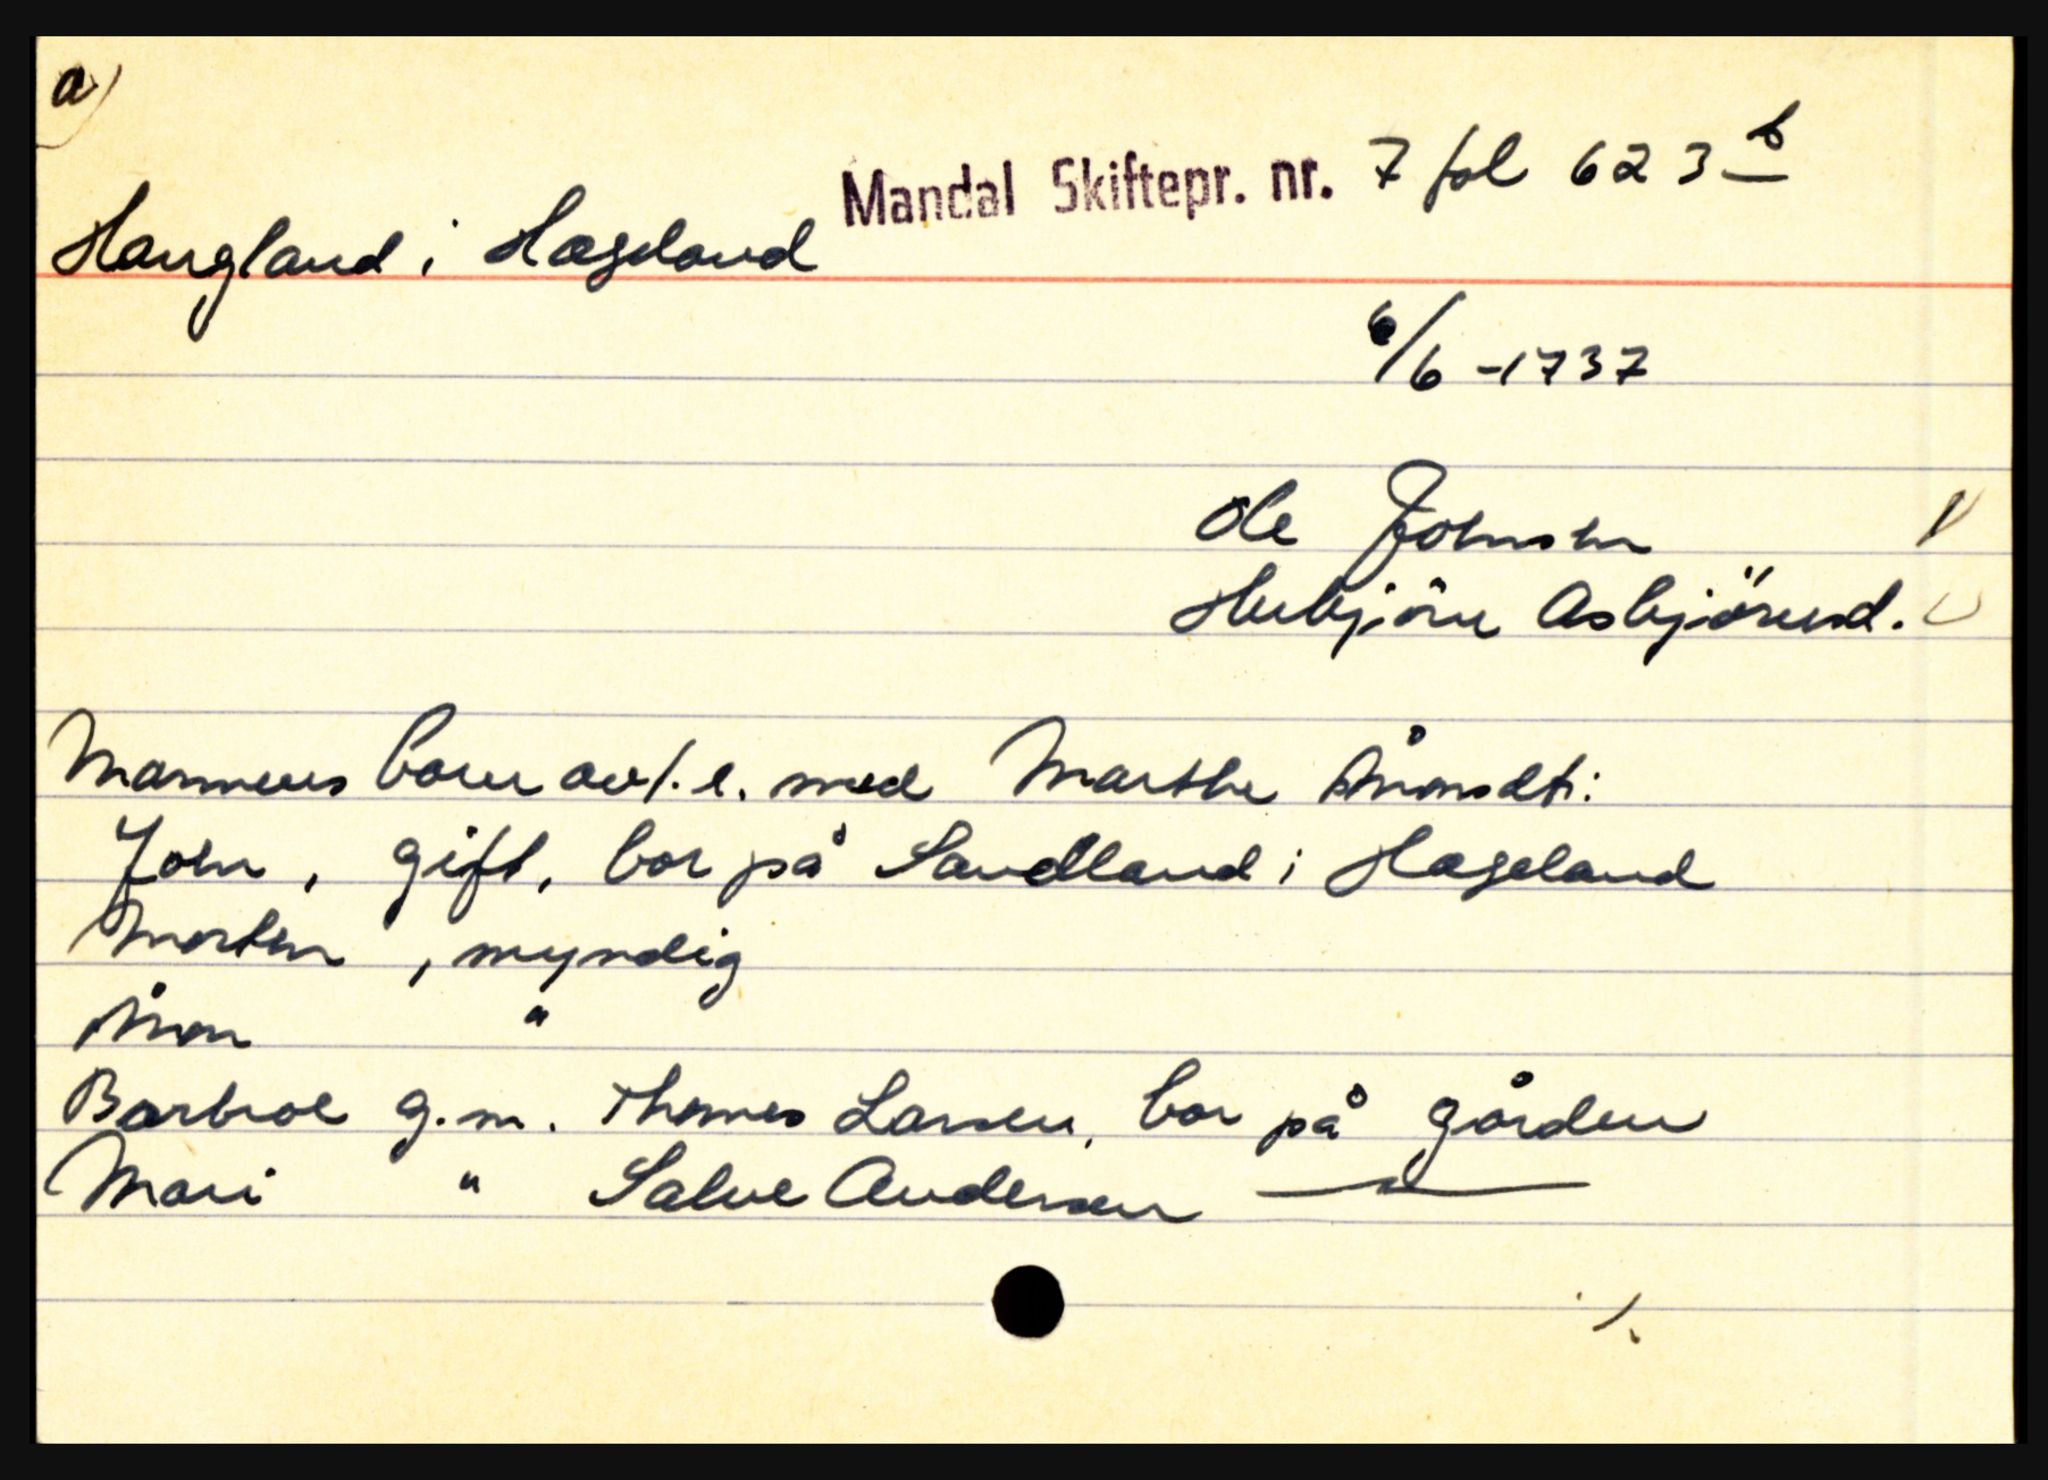 a)
Mandal Skiftepr. nr. 7 fol 623 b
Haugland i Hægeland
6/6 -1737
Ole Johnsen
Herbjörn Asbjörnsd.
Mannens born av 1. e. med Marthe Ånonsdt:
John, gift, bor på Sandland i Hægeland
Morten, myndig
Ånon "
Barbroe g.m. Thomes Larsen, bor på gården
Mari " Salve Andersen — " —
./.